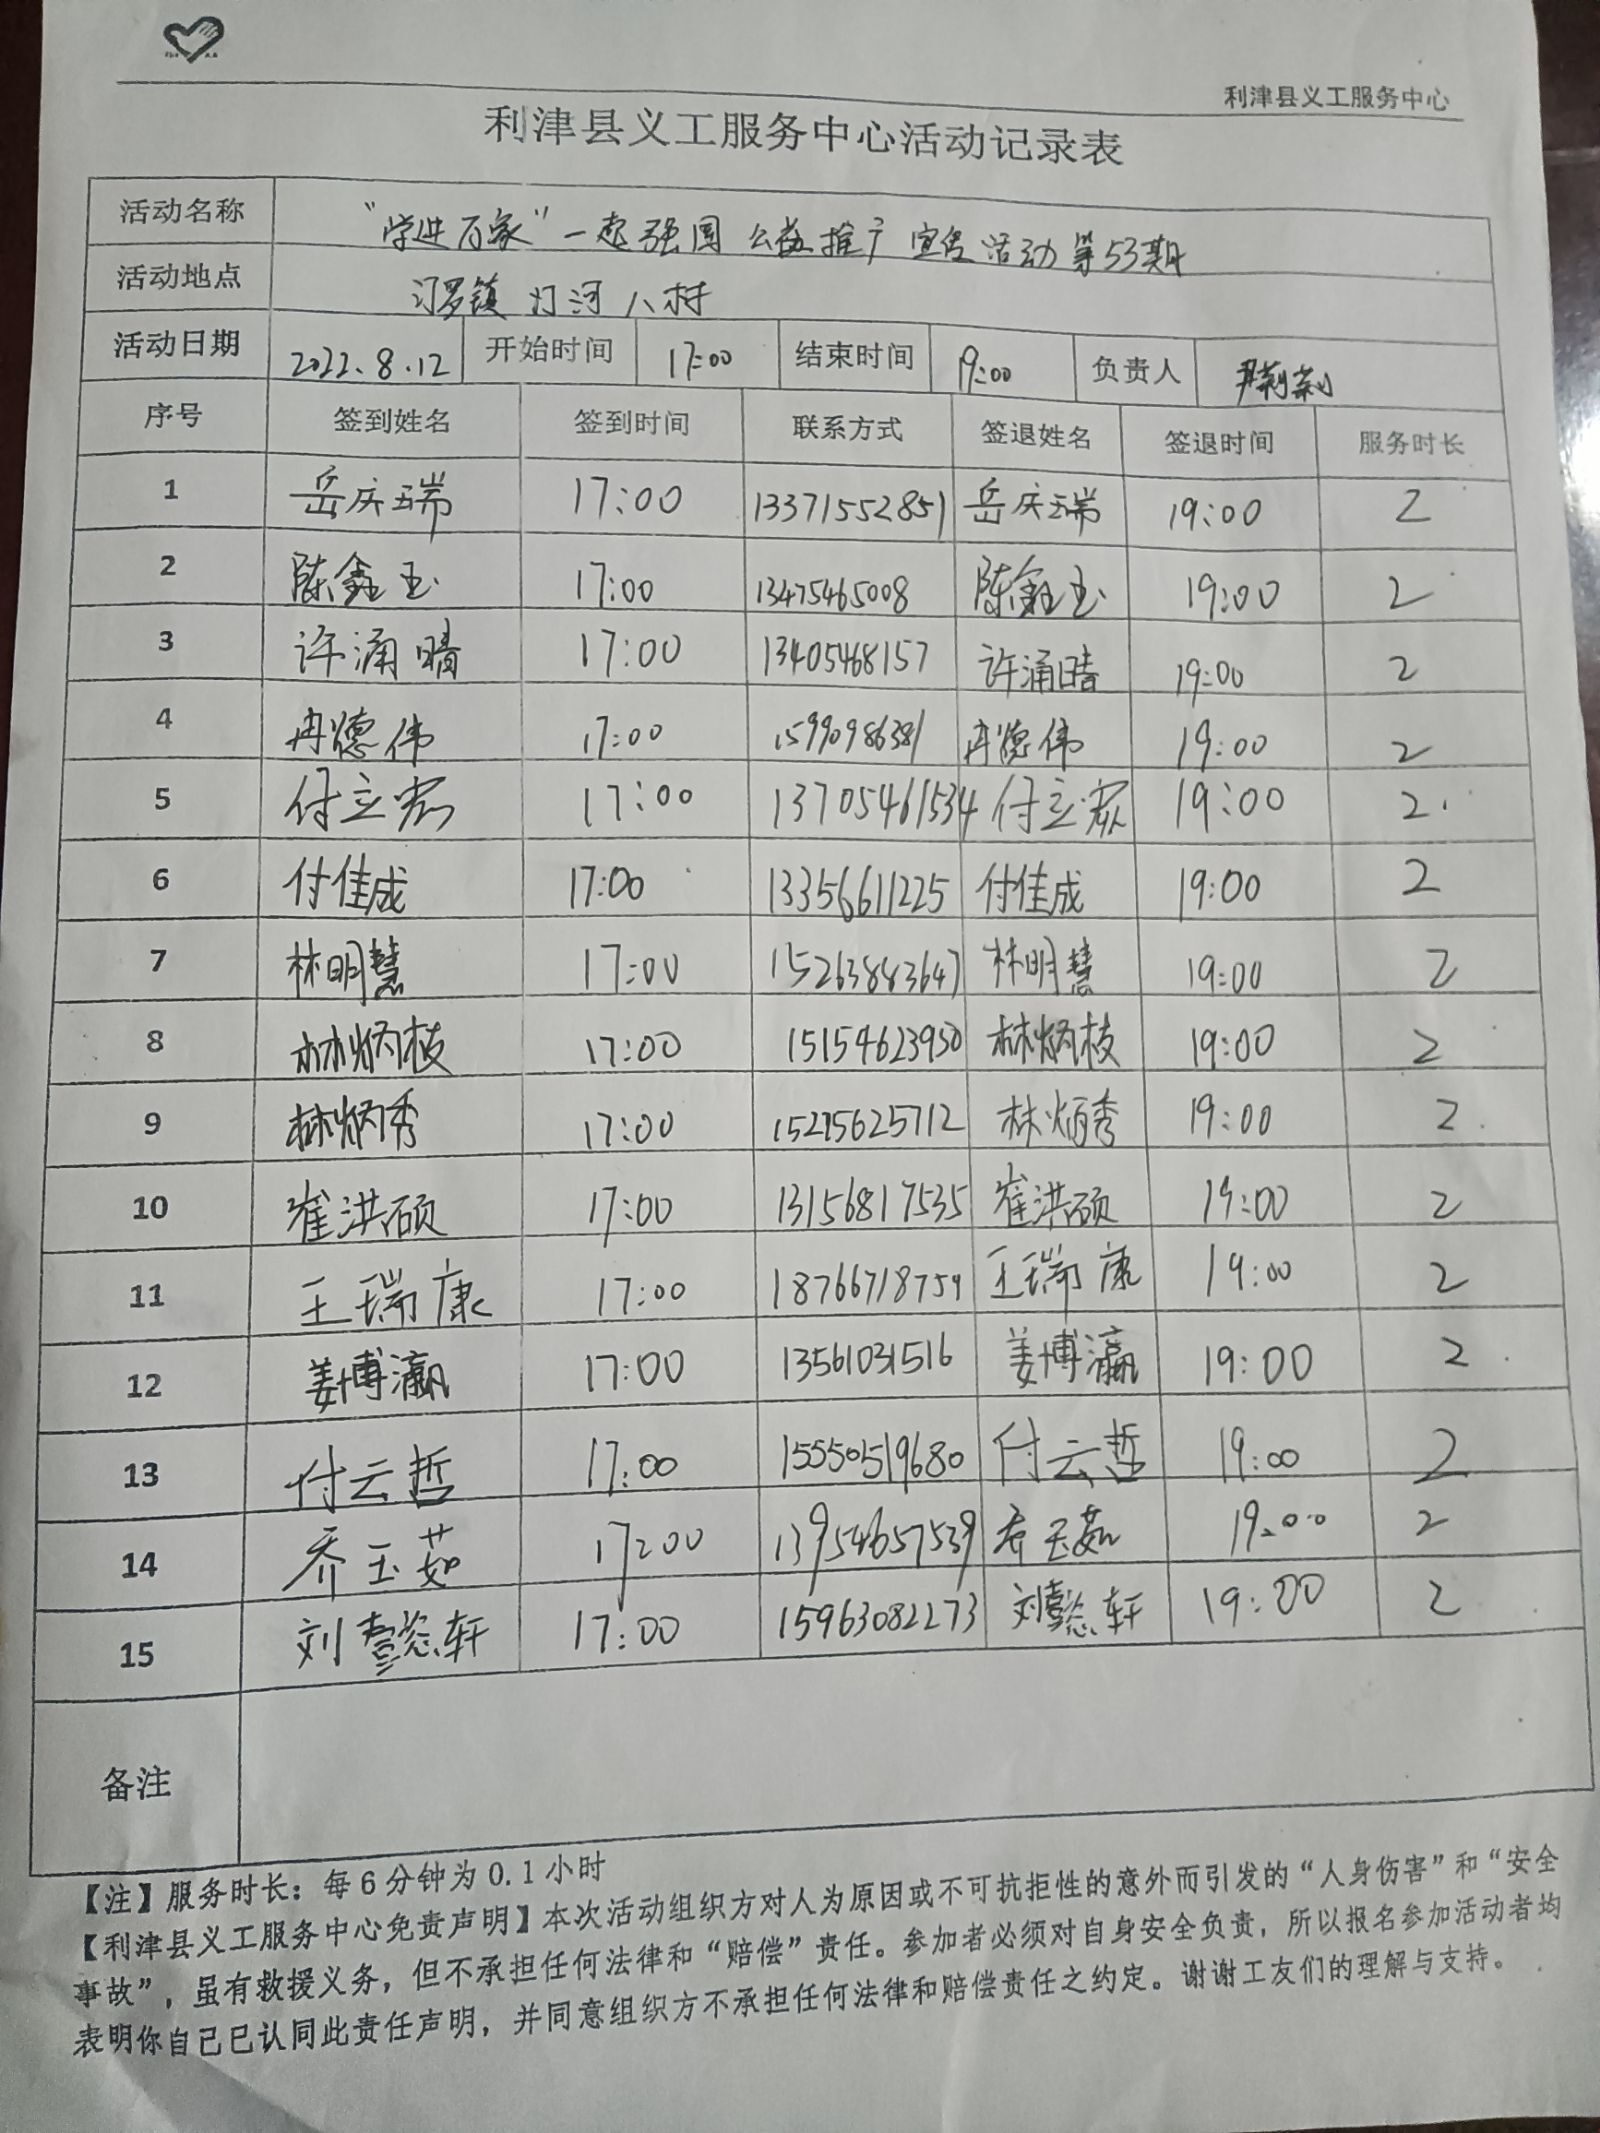 利津县义工服务中心
利津县义工服务中心活动记录表
活动名称 “学进百家”一起强国 公益推广宣传活动第53期
活动地点 汀罗镇 灯河八村
活动日期 2022.8.12 开始时间 17:00 结束时间 19:00 负责人
序号 签到姓名 签到时间 联系方式 签退姓名 签退时间 服务时长
1 岳庆瑞 17:00 13371552851 岳庆瑞 19:00 2
2 陈鑫玉 17:00 13475465008 陈鑫玉 19:00 2
3 许涌晴 17:00 13405468157 许涌晴 19:00 2
4 冉德伟 17:00 15990986381 冉德伟 19:00 2
5 付立宏 17:00 13705461534 付立宏 19:00 2
6 付佳成 17:00 13356611225 付佳成 19:00 2
7 林明慧 17:00 15263883647 林明慧 19:00 2
8 林炳枝 17:00 15154623930 林炳枝 19:00 2
9 林炳秀 17:00 15275625712 林炳秀 19:00 2
10 崔洪硕 17:00 13156817535 崔洪硕 19:00 2
11 王瑞康 17:00 18766718759 王瑞康 19:00 2
12 姜博瀛 17:00 13561031516 姜博瀛 19:00 2
13 付云哲 17:00 15550519680 付云哲 19:00 2
14 乔玉茹 17:00 13954657539 乔玉茹 19:00 2
15 刘懿轩 17:00 15963082273 刘懿轩 19:00 2
备注
【注】服务时长：每6分钟为0.1小时
【利津县义工服务中心免责声明】本次活动组织方对人为原因或不可抗拒性的意外而引发的“人身伤害”和“安全
事故”，虽有救援义务，但不承担任何法律和“赔偿”责任。参加者必须对自身安全负责，所以报名参加活动者均
表明你自己已认同此责任声明，并同意组织方不承担任何法律和赔偿责任之约定。谢谢工友们的理解与支持。